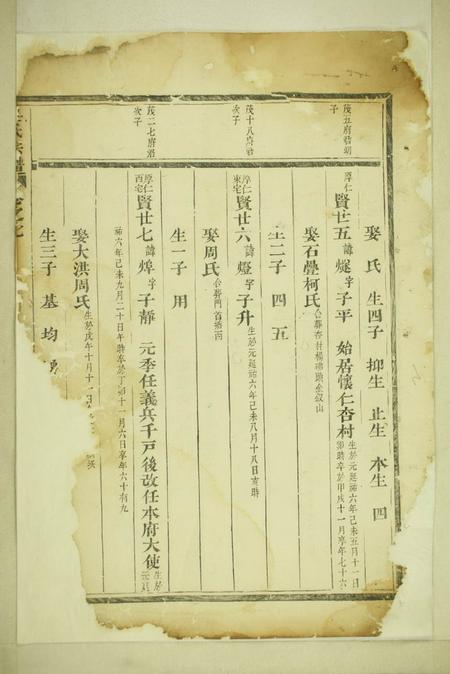 娶 氏 生四子 抑生 止生 本生 四
茂五府君胡
子
厚仁賢廿五諱燧字子平 始居懷仁杏村生於元延祐六年己未五月十一日
卯時卒於甲戌十一月卒年七十六
娶石疊柯氏合葬杏村楊
生二子 四 五
茂十八府君
次子
厚仁東宅賢廿六諱燈字子升生於元延祐六年己未八月十八日亥時
娶周氏合葬門首
生一子 用
茂二七府君
次子
厚仁西宅賢廿七諱焯字子靜 元季任義兵千戸後改任本府大使生於元延
祐六年己未九月二十日午時卒於丁卯十一月六日享年六十有九
娶大洪周氏生於戊午十月十一日
生三子 基 均
氏宗譜